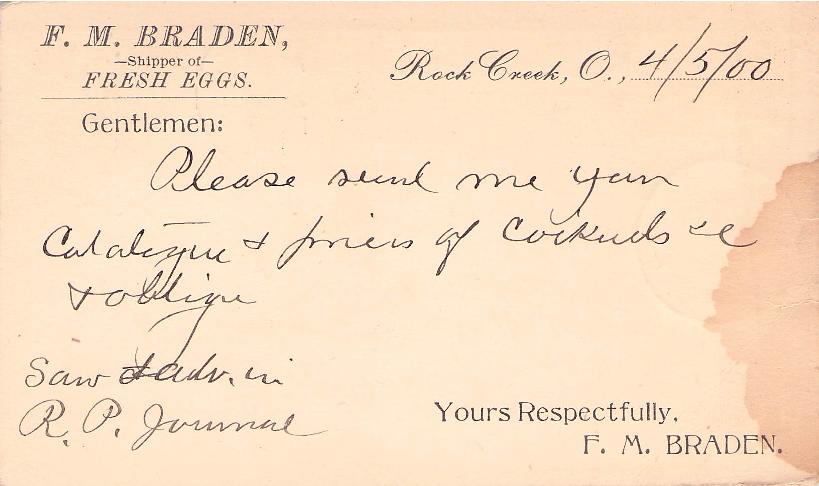 F. M. BRADEN,
—Shipper of—
FRESH EGGS.
Rock Creek, O., 4/5/00
Gentlemen:
Please send me your
Catalogue & prices of Cockerels &c
& oblige
Saw adv. in
R. P. Journal
Yours Respectfully,
F. M. BRADEN.